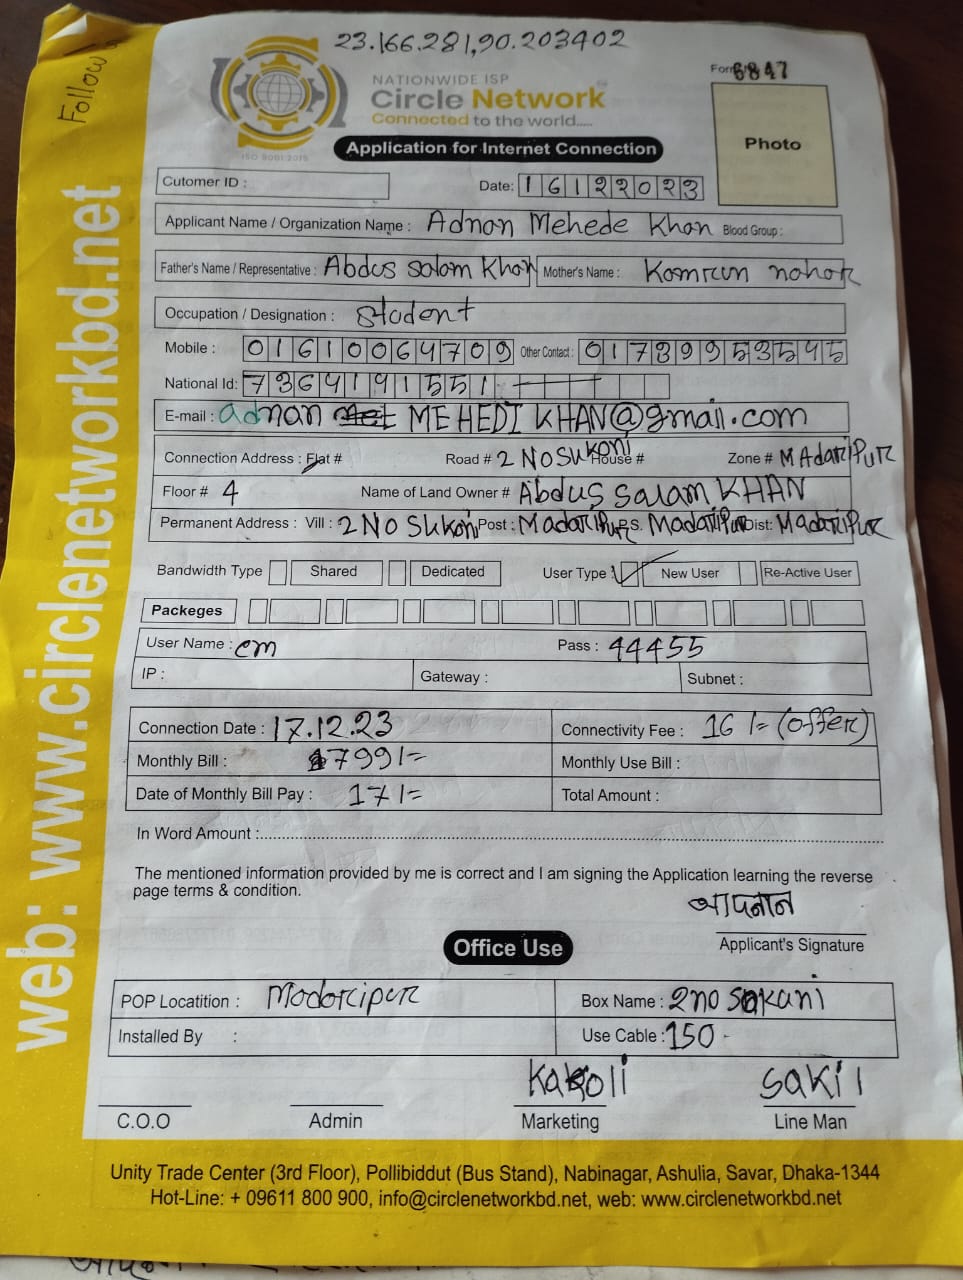 23.166.281,90.203402
Follow
NATIONWIDE ISP
Circle Network
Connected to the world.....
ISO 9001:2015
6847
Photo
Application for Internet Connection
Cutomer ID :
Date: 16122023
Applicant Name / Organization Name : Adnan Mehede Khan Blood Group :
Father's Name / Representative : Abdus salam Khan Mother's Name : Komrun nahar
Occupation / Designation : Student
Mobile : 01610064709 Other Contact : 01739953545
National Id: 7364191551
E-mail : adnan MEHEDI KHAN@gmail.com
Connection Address : Flat # Road # 2 NO SUKONI House # Zone # MAdaRiPuR
Floor # 4 Name of Land Owner # Abdus Salam KHAN
Permanent Address : Vill : 2 NO SUKONi Post : MadaRiPuR P.S. MadaRiPuR Dist: MadaRiPuR
Bandwidth Type Shared Dedicated User Type : New User Re-Active User
Packeges
User Name : cm Pass : 44455
IP : Gateway : Subnet :
Connection Date : 17.12.23 Connectivity Fee : 16 /= (offer)
Monthly Bill : 799/= Monthly Use Bill :
Date of Monthly Bill Pay : 17/= Total Amount :
In Word Amount :
The mentioned information provided by me is correct and I am signing the Application learning the reverse
page terms & condition.
আদনান
Applicant's Signature
Office Use
POP Locatition : Madaripur Box Name : 2no Sokani
Installed By : Use Cable : 150 -
Kakoli SAKIl
C.O.O Admin Marketing Line Man
Unity Trade Center (3rd Floor), Pollibiddut (Bus Stand), Nabinagar, Ashulia, Savar, Dhaka-1344
Hot-Line: + 09611 800 900, info@circlenetworkbd.net, web: www.circlenetworkbd.net
web: www.circlenetworkbd.net